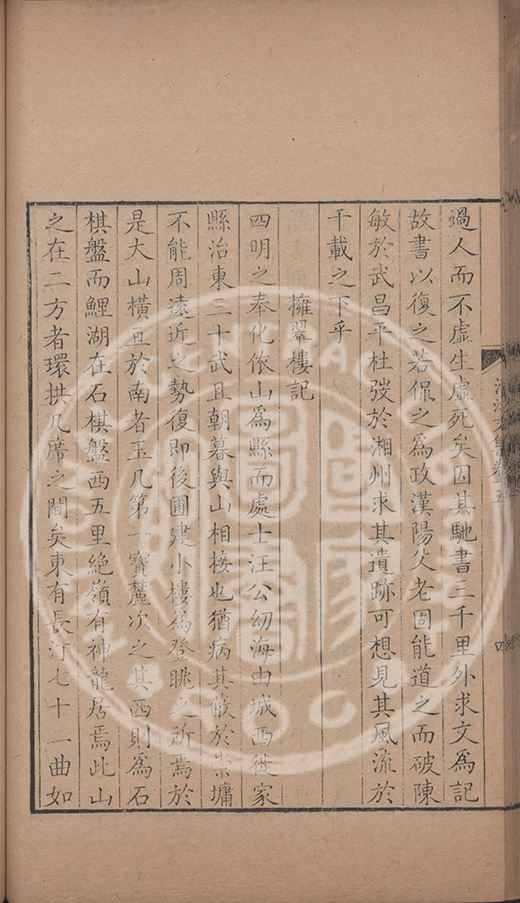 過人而不虛生虛死矣因其馳書三千里外求文為記
故書以復之若侃之為政漢陽父老固能道之而破陳
敏於武昌平杜弢於湘州求其遺跡可想見其風流於
千載之下乎
擁翠樓記
四明之奉化依山為縣而處士汪公幼海由城西徙家
縣治東三十武且朝暮與山相接也猶病其蔽於崇墉
不能周遠近之勢復即後圃建小樓為登眺之所焉於
是大山橫亘於南者玉几第一寶麓次之其西則為石
棋盤而鯉湖在石棋盤西五里絕嶺有神龍居焉此山
之在二方者環拱几席之間矣東有長汀七十二曲如
文集卷
四